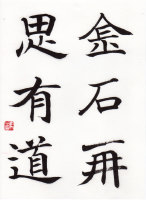 金石
思有道